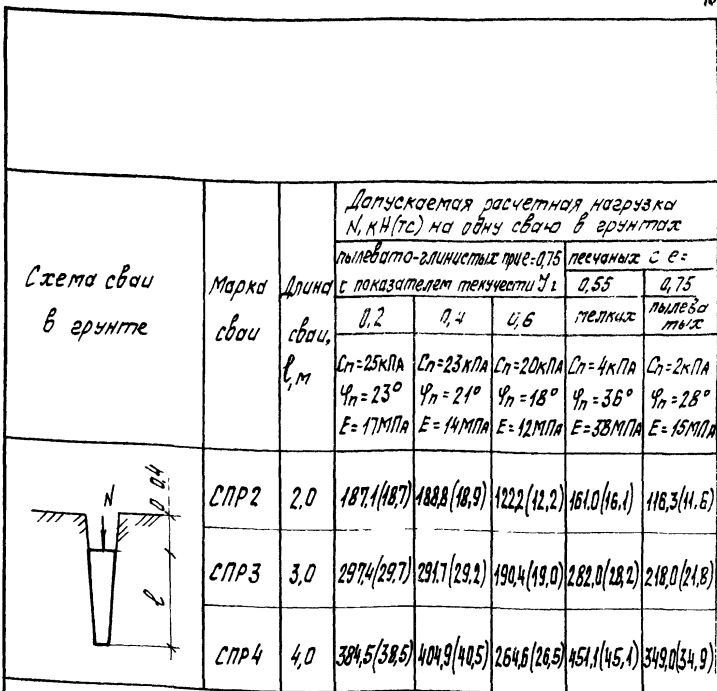 Схема сваи
в грунте
Марка
сваи
Длина
сваи,
ℓ, м
Допускаемая расчетная нагрузка
N, кН(тс) на одну сваю в грунтах
пылевато-глинистых при e=0,75
с показателем текучести
песчаных с e=
0,2
0,4
0,6
0,55
мелких
0,75
пылева
тых
Cп=25кПа
φп=23°
E=17МПа
Cп=23кПа
φп=21°
E=14МПа
Cп=20кПа
φп=18°
E=12МПа
Cп=4кПа
φп=36°
E=38МПа
Cп=2кПа
φп=28°
E=15МПа
N
0,4
ℓ
СПР2 2,0 187,1(18,7) 188,8(18,9) 122,2(12,2) 161,0(16,1) 116,3(11,6)
СПР3 3,0 297,4(29,7) 291,7(29,2) 190,4(19,0) 282,0(28,2) 218,0(21,8)
СПР4 4,0 384,5(38,5) 404,9(40,5) 264,6(26,5) 451,1(45,1) 349,0(34,9)